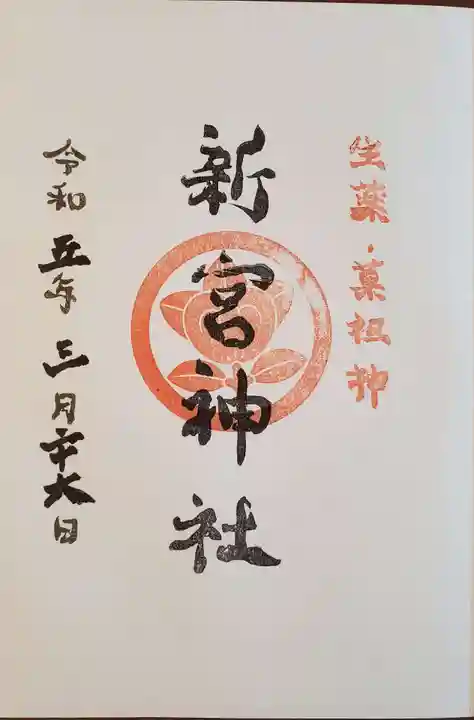 生薬・菓祖神
新宮神社
令和五年三月廿六日